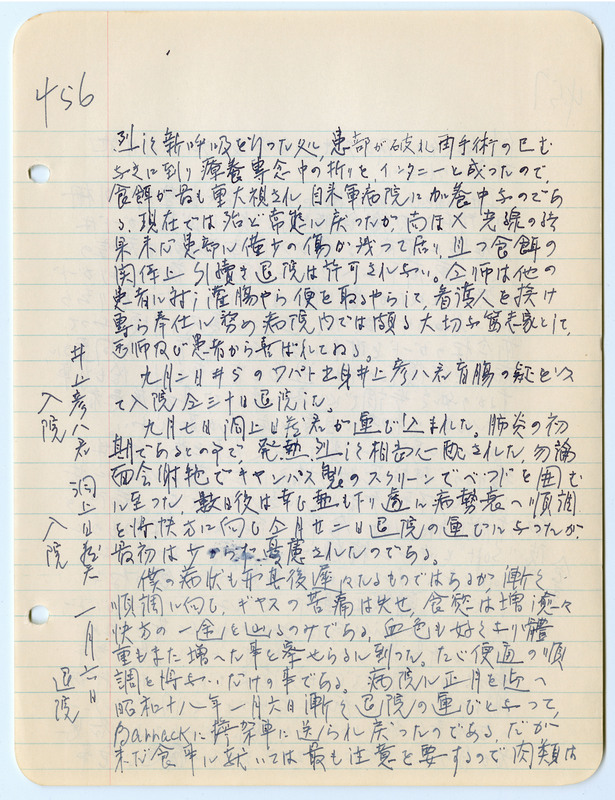 456
烈しき新呼吸をしった為、患部が破れ再手術の巳む
なきに到り療養専念中の折りを、インタニーと成ったので、
食餌が最も重大視され自来軍病院に加養中なのであ
る、現在では殆ど常態に戻ったが、尚ほX光線の結
果未だ患部に僅少の傷が残って居り、且つ食餌の
関係上引續き退院は許可されない。仝師は他の
患者に対し灌腸やら便を取るやらして、看護人を援け
専ら奉仕に努め病院内では頗る大切な篤志家として、
医師及び患者から喜ばれてゐる。
九月二日井らのワパト出身井上彦八君盲腸の疑ひ
で入院仝三十日退院した。
九月七日洞上日 君が運び込まれた。肺炎の初
期であるとの事で、発熱烈しく相当心配された、勿論
面会謝絶でキャンバス製のスクリーンでベッドを囲む
に至った、数日後は幸ひ熱も下り遂に病勢衰へ順調
を得、快方に向ひ仝月廿二日退院の運びになったが、
最初は 憂慮されたのである。
僕の病状も亦其後遅々たるものではあるが、漸く
順調に向ひ、ギヤスの苦痛は失せ、食慾は増し愈々
快方の一途を辿るのみである、血色も好くなり體
重もまた増へた事を覚せらるに到った。たゞ便通の順
調を得ないだけの事である。病院に正月を迎へ
昭和十八年一月六日漸く退院の運びとなって、
Barrackに擔架車に送られ戻ったのである、だが
未だ食事に就いては最も注意を要するので肉類は
井上彦八君入院
洞上日 君入院
一月六日退院